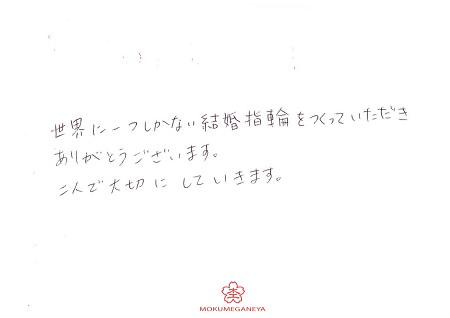 世界に一つしかない結婚指輪をつくっていただき
ありがとうございます。
二人で大切にしていきます。
MOKUMEGANEYA